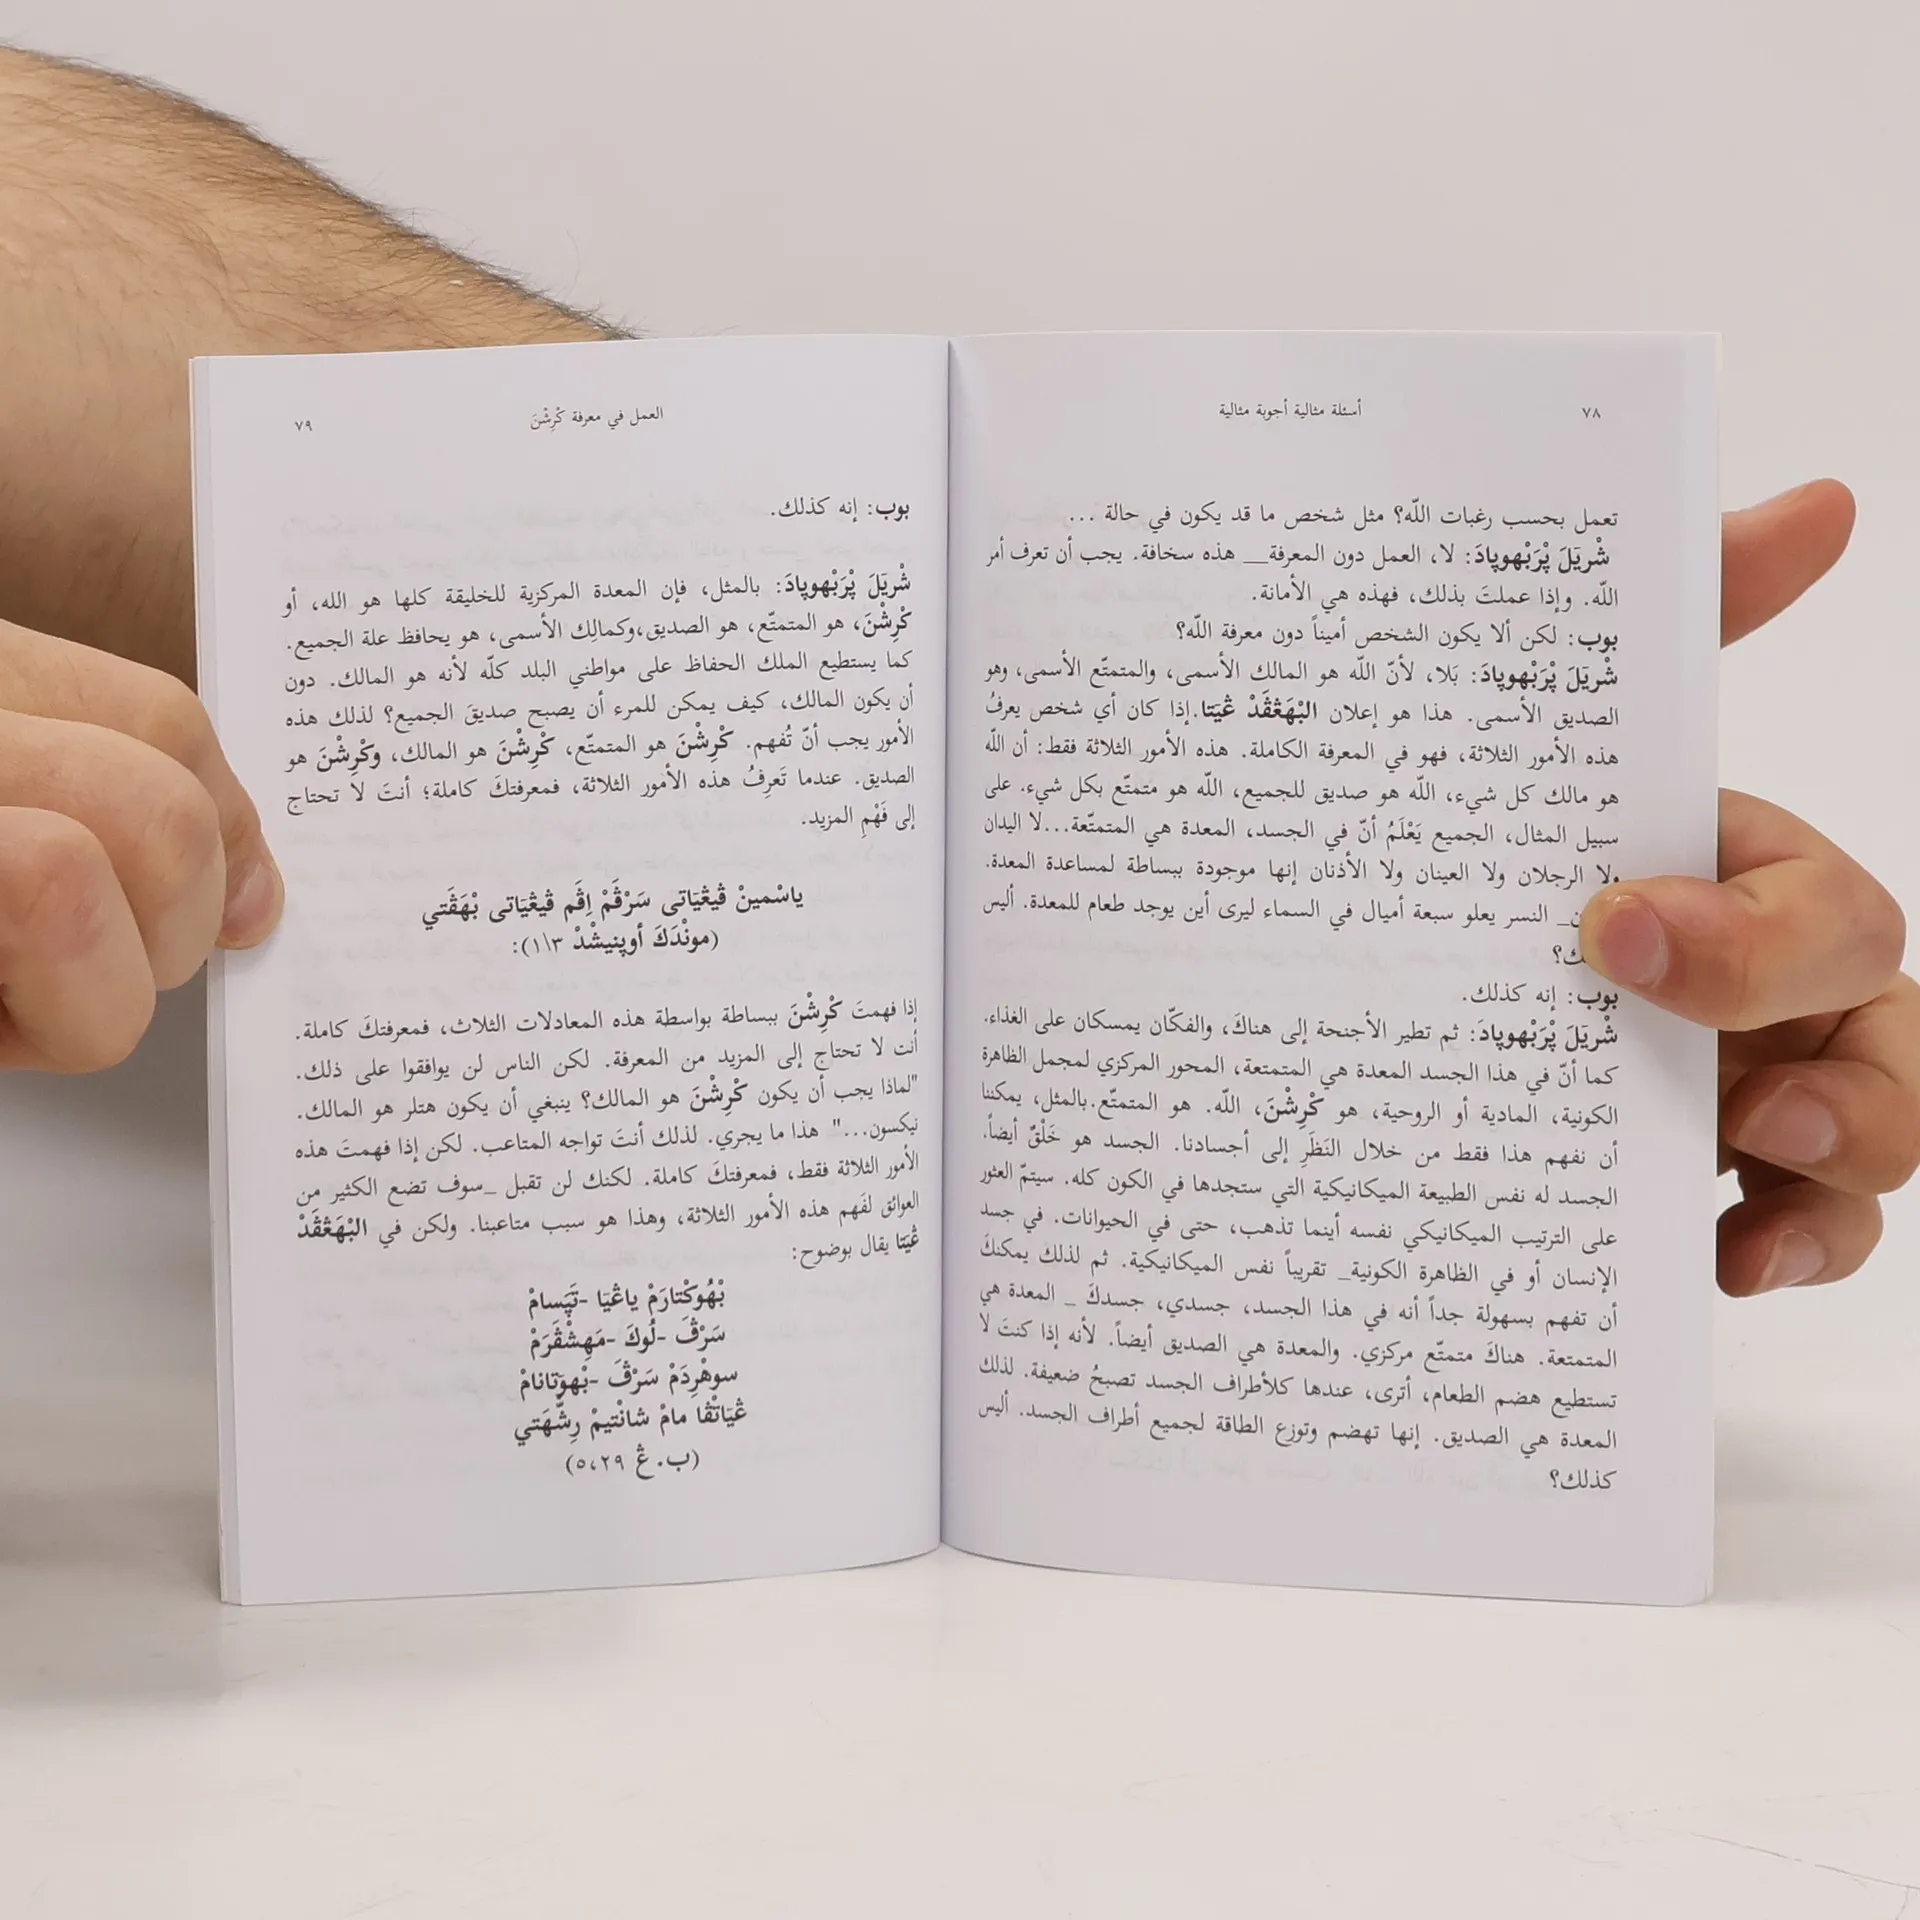 ٧٨
أسئلة مثالية أجوبة مثالية
تعمل بحسب رغبات اللّه؟ مثل شخص ما قد يكون في حالة ...
شْرِيَلَ پْرَبْهوپادَ: لا، العمل دون المعرفة__ هذه سخافة. يجب أن تعرف أمر
اللّه. وإذا عملتَ بذلك، فهذه هي الأمانة.
بوب: لكن ألا يكون الشخص أميناً دون معرفة اللّه؟
شْرِيَلَ پْرَبْهوپادَ: بَلا، لأنّ اللّه هو المالك الأسمى، والمتمتّع الأسمى، وهو
الصديق الأسمى. هذا هو إعلان البْهَڠَڤَدْ ڠيَتا.إذا كان أي شخص يعرفُ
هذه الأمور الثلاثة، فهو في المعرفة الكاملة. هذه الأمور الثلاثة فقط: أن اللّه
هو مالك كل شيء، اللّه هو صديق للجميع، اللّه هو متمتّع بكل شيء. على
سبيل المثال، الجميع يَعْلَمُ أنّ في الجسد، المعدة هي المتمتّعة...لا اليدان
ولا الرجلان ولا العينان ولا الأذنان إنها موجودة ببساطة لمساعدة المعدة.
_ النسر يعلو سبعة أميال في السماء ليرى أين يوجد طعام للمعدة. أليس
بوب: إنه كذلك.
شْرِيَلَ پْرَبْهوپادَ: ثم تطير الأجنحة إلى هناكَ، والفكّان يمسكان على الغذاء.
كما أنّ في هذا الجسد المعدة هي المتمتعة، المحور المركزي لمجمل الظاهرة
الكونية، المادية أو الروحية، هو كْرِشْنَ، اللّه. هو المتمتّع.بالمثل، يمكننا
أن نفهم هذا فقط من خلال النَظَرِ إلى أجسادنا. الجسد هو خَلْقٌ أيضاً.
الجسد له نفس الطبيعة الميكانيكية التي ستجدها في الكون كله. سيتمّ العثور
على الترتيب الميكانيكي نفسه أينما تذهب، حتى في الحيوانات. في جسد
الإنسان أو في الظاهرة الكونية_ تقريباً نفس الميكانيكية. ثم لذلك يمكنكَ
أن تفهم بسهولة جداً أنه في هذا الجسد، جسدي، جسدكَ _ المعدة هي
المتمتعة. هناكَ متمتّع مركزي. والمعدة هي الصديق أيضاً. لأنه إذا كنتَ لا
تستطيع هضم الطعام، أترى، عندها كلأطراف الجسد تصبحُ ضعيفة. لذلك
المعدة هي الصديق. إنها تهضم وتوزع الطاقة لجميع أطراف الجسد. أليس
كذلك؟
العمل في معرفة كْرِشْنَ
٧٩
بوب: إنه كذلك.
شْرِيَلَ پْرَبْهوپادَ: بالمثل، فإن المعدة المركزية للخليقة كلها هو الله، أو
كْرِشْنَ، هو المتمتّع، هو الصديق،وكمالِك الأسمى، هو يحافظ علة الجميع.
كما يستطيع الملك الحفاظ على مواطني البلد كلّه لأنه هو المالك. دون
أن يكون المالك، كيف يمكن للمرء أن يصبح صديقَ الجميع؟ لذلك هذه
الأمور يجب أنّ تُفهم. كْرِشْنَ هو المتمتّع، كْرِشْنَ هو المالك، وكْرِشْنَ هو
الصديق. عندما تَعرِفُ هذه الأمور الثلاثة، فمعرفتكَ كاملة؛ أنتَ لا تحتاج
إلى فَهْمِ المزيد.
ياسْمينْ ڤيڠْيَاتى سَرْڤَمْ اِڤَم ڤيڠْيَاتى بْهَڤَتي
(مونْدَكَ أوپنيشْدْ ٣\١):
إذا فهمتَ كْرِشْنَ ببساطة بواسطة هذه المعادلات الثلاث، فمعرفتكَ كاملة.
أنت لا تحتاج إلى المزيد من المعرفة. لكن الناس لن يوافقوا على ذلك.
"لماذا يجب أن يكون كْرِشْنَ هو المالك؟ ينبغي أن يكون هتلر هو المالك.
نيكسون..." هذا ما يجري. لذلك أنتَ تواجه المتاعب. لكن إذا فهمتَ هذه
الأمور الثلاثة فقط، فمعرفتكَ كاملة. لكنك لن تقبل _سوف تضع الكثير مِن
العوائق لفَهم هذه الأمور الثلاثة، وهذا هو سبب متاعبنا. ولكن في البْهَڠَڤَدْ
ڠيَتا يقال بوضوح:
بْهُوكْتارَمْ ياڠْيَا -تَپَسامْ
سَرْڤَ -لُوكَ -مَهِشْڤَرَمْ
سوهْرِدَمْ سَرْڤَ -بْهوَتانامْ
ڠْيَاتْڤا مامْ شانْتيمْ رِشْهَتي
(ب.ڠ ٥،٢٩)